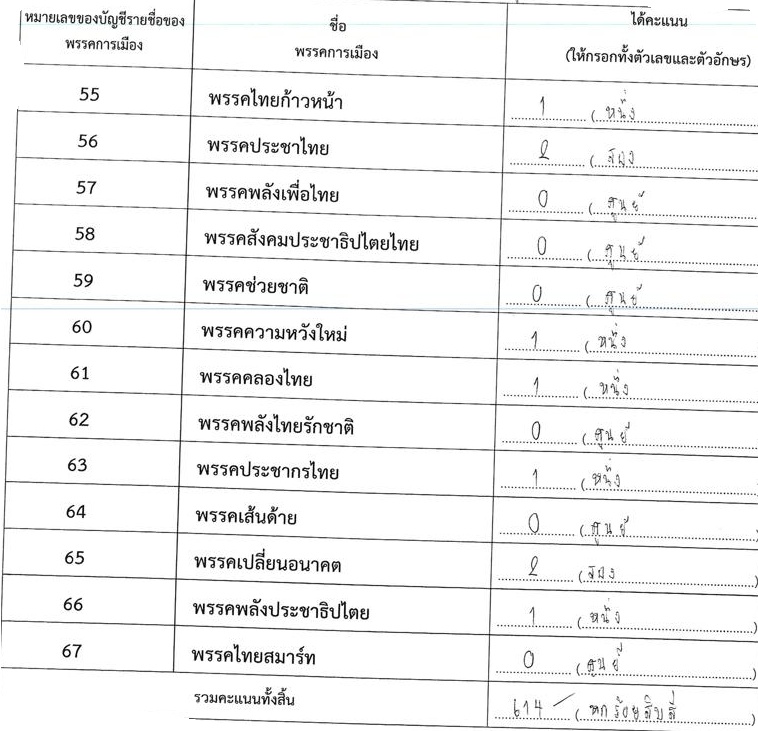 หมายเลขของบัญชีรายชื่อของ ชื่อ ได้คะแนน
พรรคการเมือง พรรคการเมือง (ให้กรอกทั้งตัวเลขและตัวอักษร)
55 พรรคไทยก้าวหน้า 1 ( หนึ่ง
56 พรรคประชาไทย 2 ( สอง
57 พรรคพลังเพื่อไทย 0 ( ศูนย์
58 พรรคสังคมประชาธิปไตยไทย 0 ( ศูนย์
59 พรรคช่วยชาติ 0 ( ศูนย์
60 พรรคความหวังใหม่ 1 ( หนึ่ง
61 พรรคคลองไทย 1 ( หนึ่ง
62 พรรคพลังไทยรักชาติ 0 ( ศูนย์
63 พรรคประชากรไทย 1 ( หนึ่ง
64 พรรคเส้นด้าย 0 ( ศูนย์ )
65 พรรคเปลี่ยนอนาคต 2 ( สอง )
66 พรรคพลังประชาธิปไตย 1 ( หนึ่ง )
67 พรรคไทยสมาร์ท 0 ( ศูนย์ )
รวมคะแนนทั้งสิ้น 614 ( หกร้อยสิบสี่ )